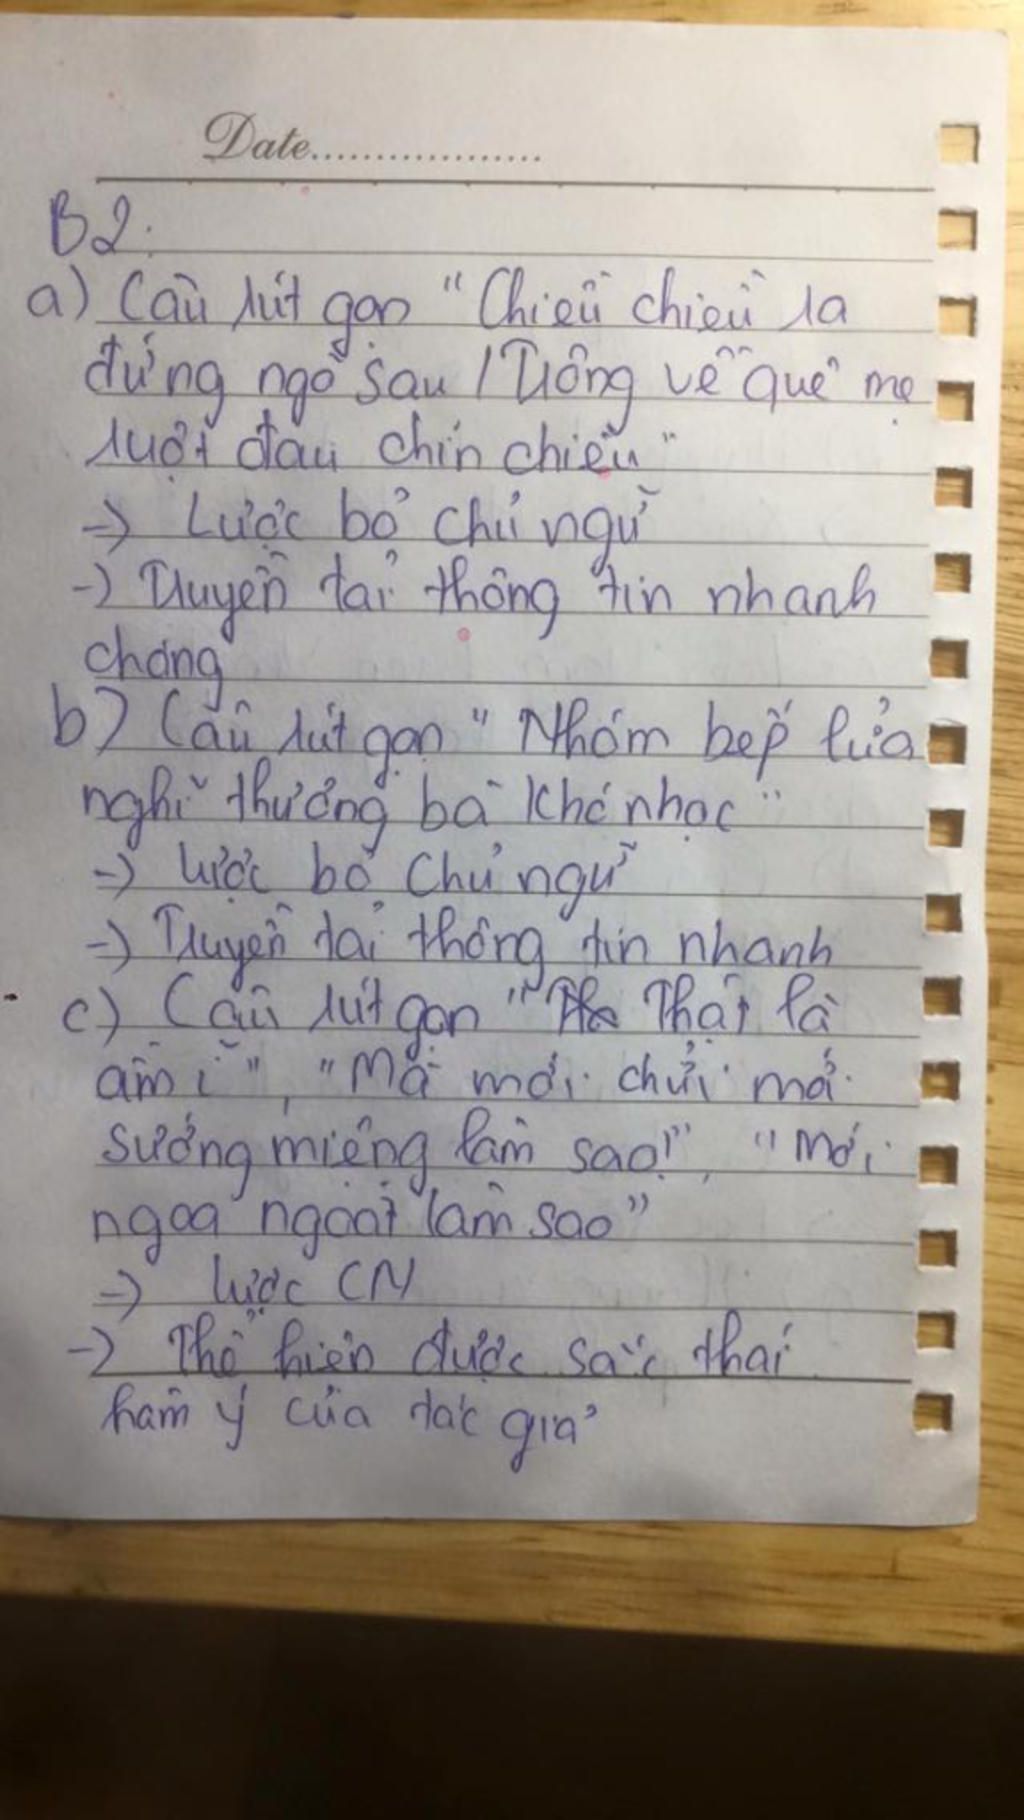 Date..................
B2.
a) Câu rút gọn "Chiều chiều ra
đứng ngõ sau / Trông về quê mẹ
ruột đau chín chiều"
-> Lược bỏ chủ ngữ
-> Truyền tải thông tin nhanh
chóng
b) Câu rút gọn "Nhóm bếp lửa
nghĩ thương bà khó nhọc"
-> lược bỏ chủ ngữ
-> Truyền tải thông tin nhanh
c) Câu rút gọn "Thật là
ầm ĩ", "Mà mới chửi mới
sướng miệng làm sao!", "Mới
ngoa ngoắt làm sao"
-> lược CN
-> Thể hiện được sắc thái
hàm ý của tác giả